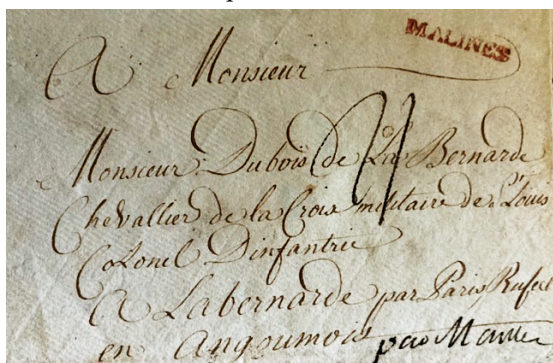 MALINES
A Monsieur
Monsieur Dubois de La Bernarde
Chevallier de la Croix militaire de St Louis
Colonel Dinfantrie
A Labernarde par Paris Rufec
en Angoumois par